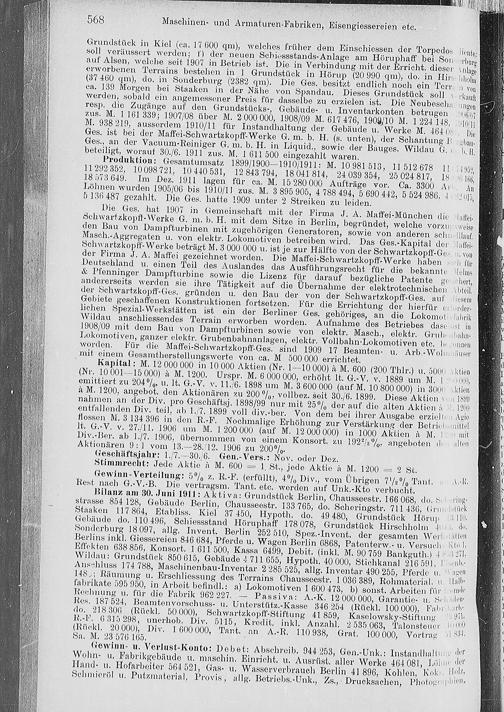 568 Maschinen- und Armaturen-Fabriken, Eisengiessereien etc.
Grundstück in Kiel (ca. 17 600 qm), welches früher dem Einschiessen der Torpedos
soll veräussert werden; f) der neuen Schiessstands-Anlage am Höruphaff bei
auf Alsen, welche seit 1907 in Betrieb ist. Die in Verbindung mit der Erricht. dieser
erworbenen Terrains bestehen in 1 Grundstück in Hörup (20 990 qm), do. in
(37 460 qm), do. in Sonderburg (2382 qm). Die Ges. besitzt endlich noch ein
ca. 139 Morgen bei Staaken in der Nähe von Spandau. Dieses Grundstück soll
werden, sobald ein angemessener Preis für dasselbe zu erzielen ist. Die
resp. die Zugänge auf den Grundstücks-, Gebäude- u. Inventarkonten betrugen
zus. M. 1 161 339; 1907/08 über M. 2 000 000, 1908/09 M. 617 476, 1909/10 M. 1 224 148,
M. 938 219, ausserdem 1910/11 für Instandhaltung der Gebäude u. Werke M. 464
Ges. ist bei der Maffei-Schwartzkopff-Werke G. m. b. H. (s. unten), der Schantung
Ges., an der Vacuum-Reiniger G. m. b. H. in Liquid., sowie der Bauges. Wildau G.
beteiligt, worauf 30./6. 1911 zus. M. 1 611 500 eingezahlt waren.
Produktion: Gesamtumsatz 1899/1900—1910/1911: M. 10 981 513, 11 512 678
11 292 352, 10 098 721, 10 440 531, 12 843 794, 18 041 814, 24 039 354, 25 024 817,
18 573 649. Im Dez. 1911 lagen für ca. M. 15 280 000 Aufträge vor. Ca. 3300
Löhnen wurden 1905/06 bis 1910/11 zus. M. 3 895 905, 4 788 494, 5 690 442, 5 524 986,
5 136 487 gezahlt. Die Ges. hatte 1909 unter 2 Streiken zu leiden.
Die Ges. hat 1907 in Gemeinschaft mit der Firma J. A. Maffei-München die
Schwartzkopff-Werke G. m. b. H. mit dem Sitze in Berlin, begründet, welche
den Bau von Dampfturbinen mit zugehörigen Generatoren, sowie von anderen
Masch.-Aggregaten u. von elektr. Lokomotiven betreiben wird. Das Ges.-Kapital der
Schwartzkopff-Werke beträgt M. 3 000 000 u. ist je zur Hälfte von der Schwartzkopff-Ges.
der Firma J. A. Maffei gezeichnet worden. Die Maffei-Schwartzkopff-Werke haben
Deutschland u. einen Teil des Auslandes das Ausführungsrecht für die bekannte
& Pfenninger Dampfturbine sowie die Lizenz für darauf bezügliche Patente
andererseits werden sie ihre Tätigkeit auf die Übernahme der elektrotechnischen
der Schwartzkopff-Ges. gründen u. den Bau der von der Schwartzkopff-Ges. auf
Gebiete geschaffenen Konstruktionen fortsetzen. Für die Errichtung der hierfür
lichen Spezial-Werkstätten ist ein der Berliner Ges. gehöriges, an die
Wildau anschliessendes Terrain erworben worden. Aufnahme des Betriebes
1908/09 mit dem Bau von Dampfturbinen sowie von elektr. Masch., elektr.
Lokomotiven, ganzer elektr. Grubenbahnanlagen, elektr. Vollbahn-Lokomotiven etc.
worden. Für die Maffei-Schwartzkopff-Ges. sind 1909 17 Beamten- u. Arb.-
mit einem Gesamtherstellungswerte von ca. M 500 000 errichtet.
Kapital: M. 12 000 000 in 10 000 Aktien (Nr. 1—10 000) à M. 600 (200 Thlr.) u. 5000 Aktien
(Nr. 10 001—15 000) à M. 1200. Urspr. M. 6 000 000, erhöht lt. G.-V. v. 1889 um M.
emittiert zu 204%, u. lt. G.-V. v. 11./6. 1898 um M. 3 600 000 (auf M. 10 800 000) in
à M. 1200, angebot. den Aktionären zu 200%, vollbez. seit 30./6. 1899. Diese Aktien
nahmen an der Div. pro Geschäftsj. 1898/99 nur mit 25% der auf die alten Aktien
entfallenden Div. teil, ab 1./7. 1899 voll div.-ber. Von dem bei ihrer Ausgabe erzielten
flossen M. 3 134 396 in den R.-F. Nochmalige Erhöhung zur Verstärkung der
lt. G.-V. v. 27./11. 1906 um M. 1 200 000 (auf M. 12 000 000) in 1000 Aktien à M.
Div.-Ber. ab 1./7. 1906, übernommen von einem Konsort. zu 192½%, angeboten
Aktionären 9:1 vom 13.—28./12. 1906 zu 200%.
Geschäftsjahr: 1./7.—30./6. Gen.-Vers.: Nov. oder Dez.
Stimmrecht: Jede Aktie à M. 600 = 1 St., jede Aktie à M. 1200 = 2 St.
Gewinn-Verteilung: 5% z. R.-F. (erfüllt), 4% Div., vom Übrigen 7½% Tant.
Rest nach G.-V.-B. Die vertragsm. Tant. etc. werden auf Unk.-Kto verbucht.
Bilanz am 30. Juni 1911: Aktiva: Grundstück Berlin, Chausseestr. 166 068, do.
strasse 854 128, Gebäude Berlin, Chausseestr. 133 765, do. Scheringstr. 711 436,
Staaken 117 864, Etabliss. Kiel 37 450, Hypoth. do. 49 480, Grundstück Hörup
Gebäude do. 110 496, Schiessstand Höruphaff 178 078, Grundstück Hirschholm
Sonderburg 18 097, allg. Invent. Berlin 252 510, Spez.-Invent. der gesamten
Berlins inkl. Giesserei 846 684, Pferde u. Wagen Berlin 6868, Patenterw.- u. Versuchs-
Effekten 638 856, Konsort. 1 611 500, Kassa 6499, Debit. (inkl. M. 90 759 Bankguth.)
Wildau: Grundstück 850 615, Gebäude 4 711 655, Hypoth. 40 000, Eichkanal 216 591,
Anschluss 174 788, Maschinenbau-Inventar 2 285 525, allg. Inventar 490 255, Pferde u.
148; Räumung u. Erschliessung des Terrains Chausseestr. 1 036 389, Rohmaterial. u.
fabrikate 595 950, in Arbeit befindl.: a) Lokomotiven 1 600 473, b) sonst. Arbeiten
Rechnung u. für die Fabrik 962 227. — Passiva: A.-K. 12 000 000, Garantie- u.
Res. 187 524, Beamtenvorschuss- u. Unterstütz.-Kasse 346 254 (Rückl. 100 000),
do. 218 306 (Rückl. 50 000), Schwartzkopff-Stiftung 41 859, Kaselowsky-Stiftung
R.-F. 6 315 298, unerhob. Div. 5115, Kredit. inkl. Anzahl. 2 535 063, Talonsteuer
(Rückl. 20 000), Div. 1 600 000, Tant. an A.-R. 110 938, Grat. 100 000, Vortrag
Sa. M. 23 576 165.
Gewinn- u. Verlust-Konto: Debet: Abschreib. 944 253, Gen.-Unk.: Instandhaltung der
Wohn- u. Fabrikgebäude u. maschin. Einricht. u. Ausrüst. aller Werke 464 081, Löhne der
Hand- u. Hofarbeiter 564 521, Gas- u. Wasserverbrauch Berlin 41 896, Kohlen, Koks, Holz,
Schmieröl u. Putzmaterial, Provis., allg. Betriebs.-Unk., Zs., Drucksachen, Photographien,